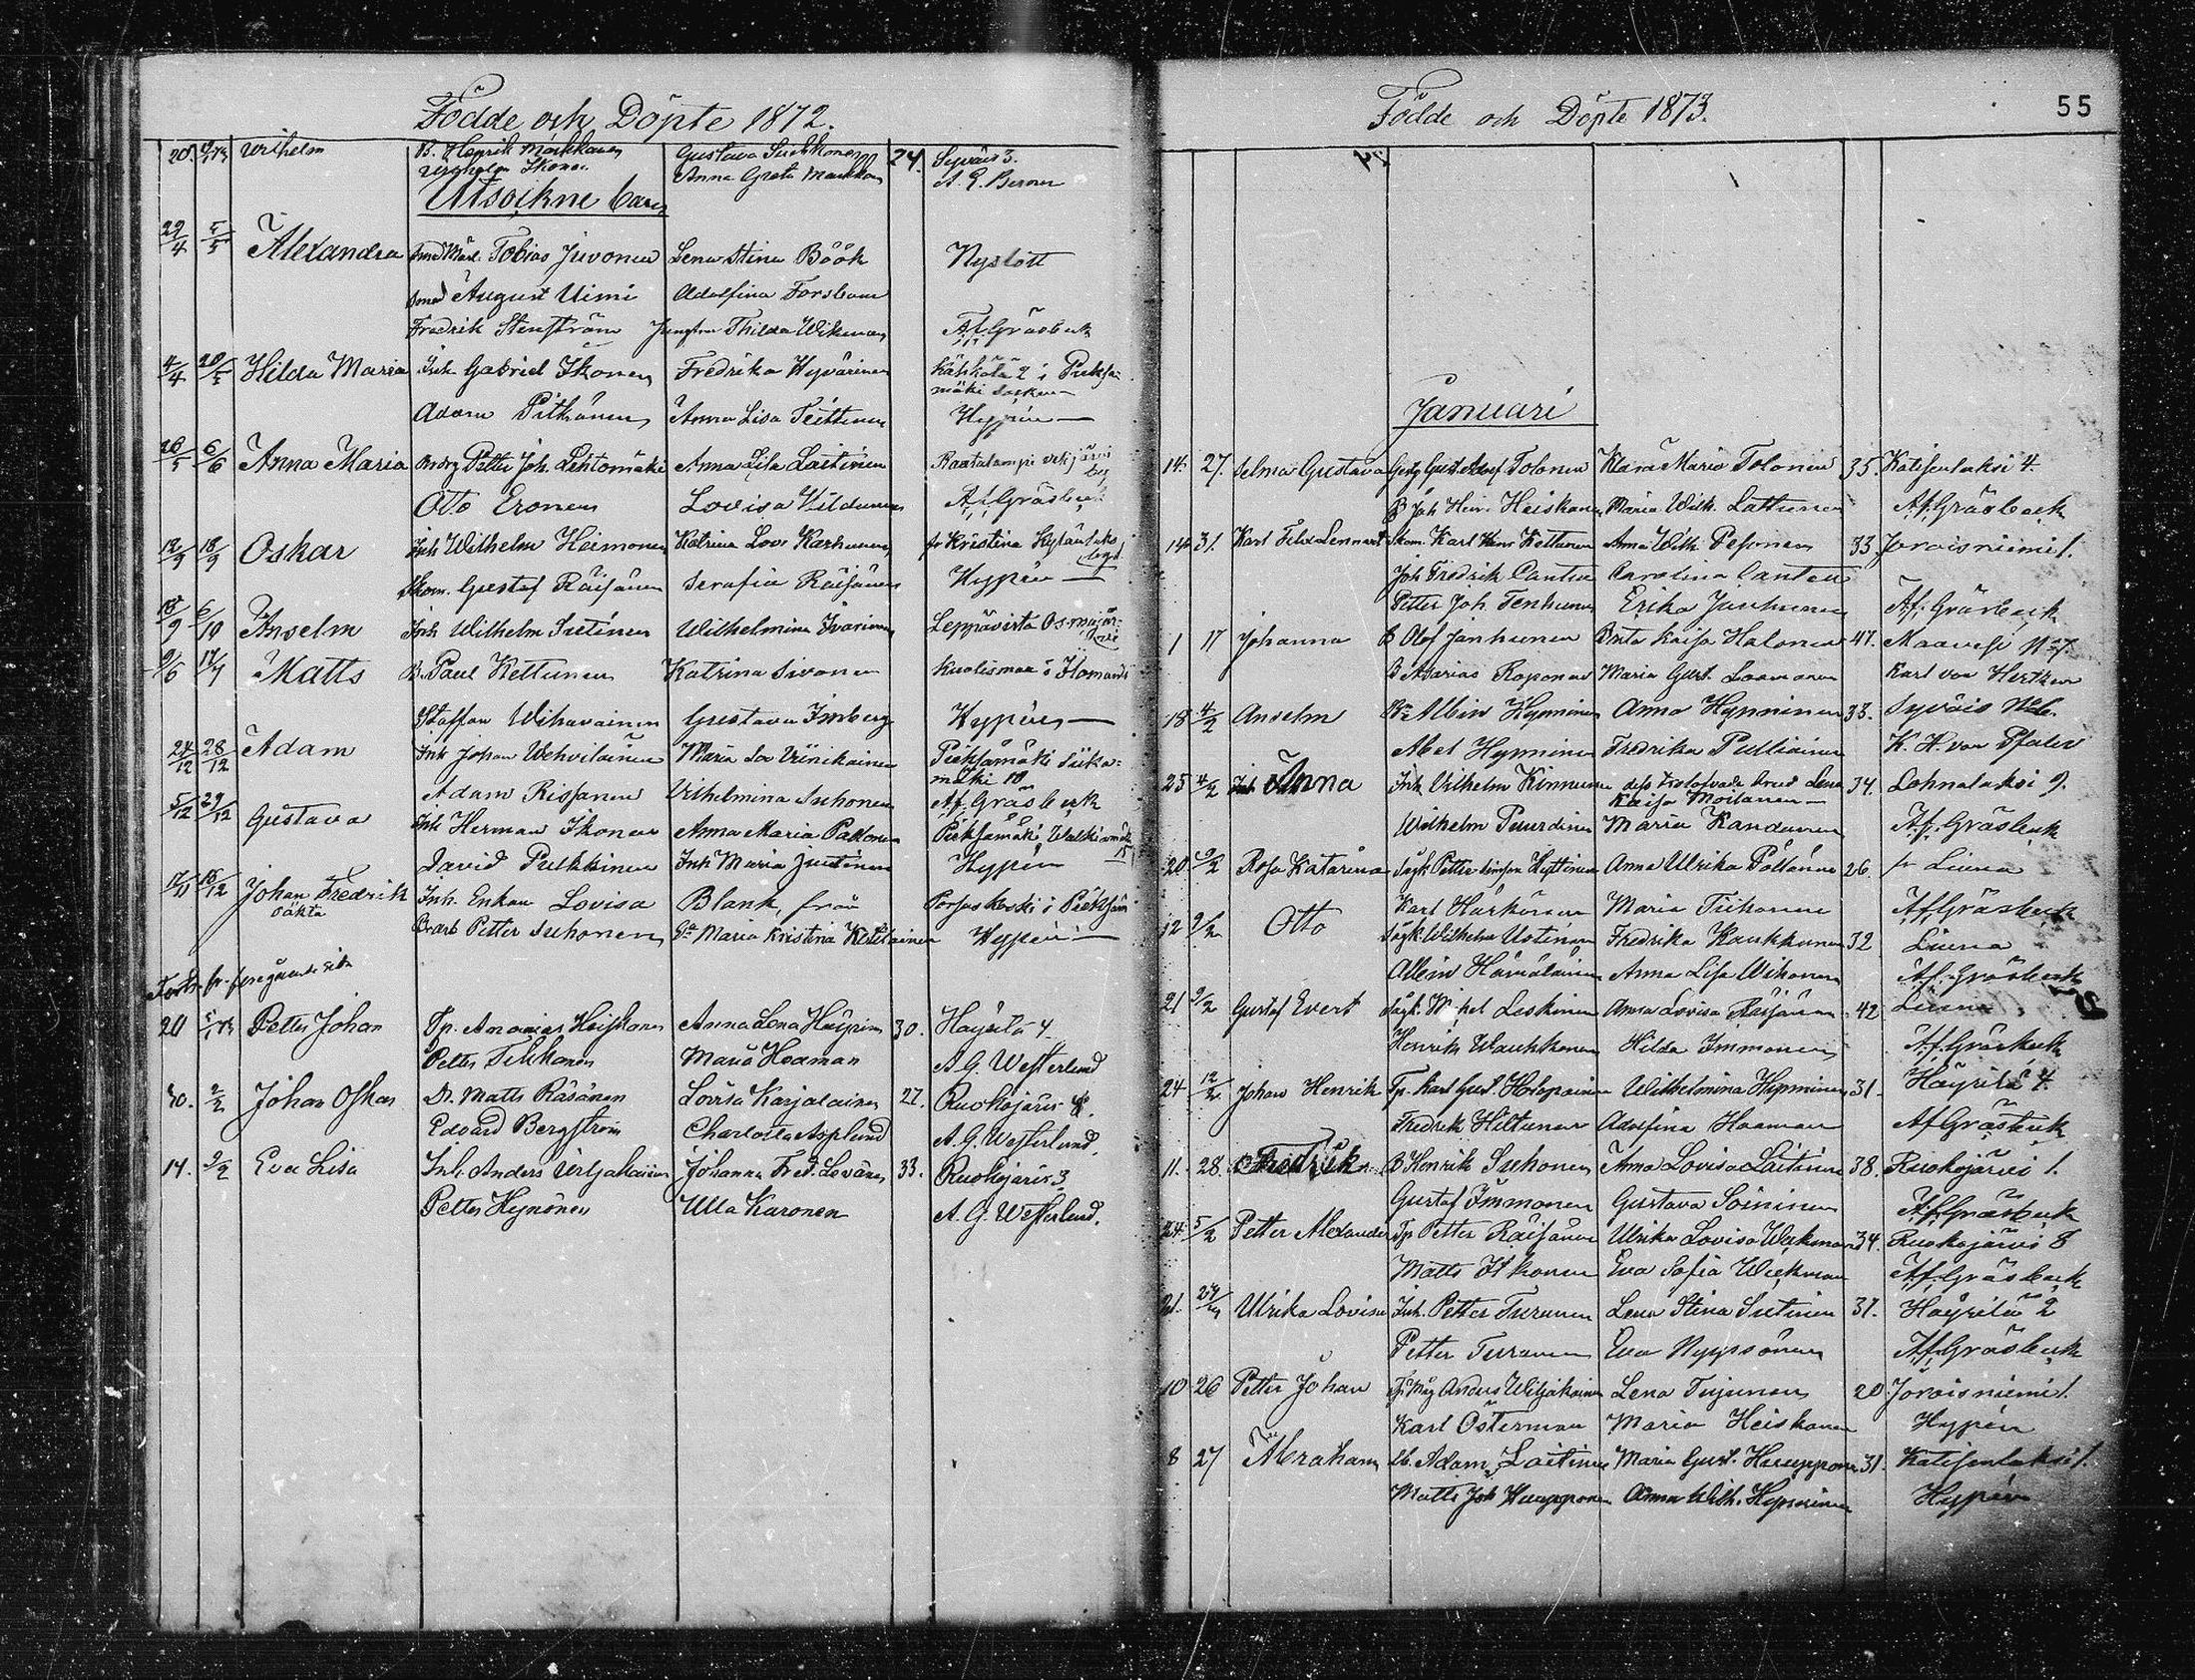 Födde och Döpte 1872.
20. Wilhelm B. Henrik Markkanen Gustava Suhkonen 24. Syväis 3.
Ikonen Anna Greta A. G.
Utsockne barn
29/4 5/5 Alexandra Tobias Juvonen Lena Stina Böök Nyslott
August Uimi Adolfina
Fredrik Stenström Thilda Wikman Af Gräsbeck
4/4 20/5 Hilda Maria Inh. Gabriel Ikonen Fredrika Hyvärinen 2 i Pieksä-
mäki socken
Adam Pitkänen Anna Lisa Teittinen Hyppén —
26/5 6/6 Anna Maria Petter Joh. Lehtomäki Anna Lisa Laitinen
Otto Eronen Lovisa Af Gräsbeck
12/9 18/9 Oskar Inh Wilhelm Heimonen Katrina Lov. Karhunen fr Kristina
Skom. Gustaf Räisänen Serafia Räisänen Hyppén —
6/10 Anselm Inh Wilhelm Sutinen Wilhelmina Ivarinen Leppävirta
17/7 Matts B. Paul Kettunen Katrina Sivonen i Ilomants
Staffan Wihavainen Gustava Imberg Hyppén —
24/12 28/12 Adam Inh Johan Wehviläinen Maria Lov Pieksämäki Siika-
mäki 10
Adam Rissanen Wilhelmina Suhonen Af Gräsbeck
5/12 29/12 Gustava Inh Herman Ikonen Anna Maria Pieksämäki
15
David Pulkkinen Inh Maria Hyppén —
17/11 15/12 Johan Fredrik Inh. Enkan Lovisa Blank, från i Pieksäm
oäkta
Petter Suhonen Maria Kristina Hyppén —
Forts. fr. föregående sida
20 Petter Johan Tp. Ananias Heiskanen Anna Lena 30. Häyrilä 4.
Petter Tikkanen Maria Haaman A. G. Westerlund
30. 2/2 Johan Oskar Dr. Matts Räsänen Lovisa Karjalainen 27. Ruokojärvi
Edvard Bergström Charlotta Asplund A. G. Westerlund.
14. 2/2 Eva Lisa Inh. Anders Johanna Fred. Levänen 33. Ruokojärvi 3
Petter Hynönen Ulla Karonen A. G. Westerlund.
Födde och Döpte 1873.
55
Januari
14. 27. Selma Gustava Gust. Adolf Tolonen Klara Maria Tolonen 35. Katisenlaksi 4.
B Joh Henr Heiskanen Maria Wilh. Lattunen Af Gräsbeck
14 31. Karl Felix Lennart Skom. Karl Henr Kettunen Anna Wilh Pesonen 33. Joroisniemi 1.
Joh Fredrik Canten Carolina Canten
Petter Joh Tenhunen Erika Janhunen Af Gräsbeck
1 17 Johanna B Olof Janhunen Brita Kaisa Halonen 47. Maavesi No 7.
B Asarias Roponen Maria Gust. Loamanen Karl von Hertzen
18 4/2 Anselm Albin Hynninen Anna Hynninen 33. Syväis No 6.
Abel Hynninen Fredrika Pulliainen K. H. von Pfaler
25 4/2 Anna Inh Vilhelm Kinnunen dess trolofvade brud Lena 34. Lohnalaksi 9.
Kaisa Moilanen —
Wilhelm Maria Af Gräsbeck
20 9/2 Rosa Katarina Sågk Petter Simson Anna Ulrika 26. fr Liuna
Karl Härkönen Maria Tiihonen Af Gräsbeck
12 9/2 Otto Sågk. Wilhelm Ustinen Fredrika Kaukkunen 32 Liuna
Albin Hämäläinen Anna Lisa Wihonen Af Gräsbeck
21 9/2 Gustaf Evert Sågk. Leskinen Anna Lovisa Räisänen 42 Liuna
Henrik Waukkonen Hilda Immonen Af Gräsbeck
24 12/2 Johan Henrik Tp. Karl Gust. Holopainen Wilhelmina Hynninen 31. Häyrilä 4.
Fredrik Hiltunen Adolfina Haaman Af Gräsbeck
11. 28. Fredrik B Henrik Suhonen Anna Lovisa Laitinen 38. Ruokojärvi 1.
Gustaf Immonen Gustava Soininen Af Gräsbeck
24. 5/2 Petter Alexander Tp Petter Räisänen Ulrika Lovisa Wekman 34. Ruokojärvi 8
Matts Ikonen Eva Sofia Wiekman Af Gräsbeck
21. Ulrika Lovisa Inh. Petter Turunen Lena Stina Sutinen 37. Häyrilä 2
Petter Turunen Eva Nyyssönen Af Gräsbeck
10 26 Petter Johan Anders Lena 20. Joroisniemi 1.
Karl Österman Maria Heiskanen Hyppén
8 27 Abraham Adam Laitinen Maria Gust. Huupponen 31. Katisenlaksi 1.
Matts Joh Huupponen Anna Wilh. Hynninen Hyppén